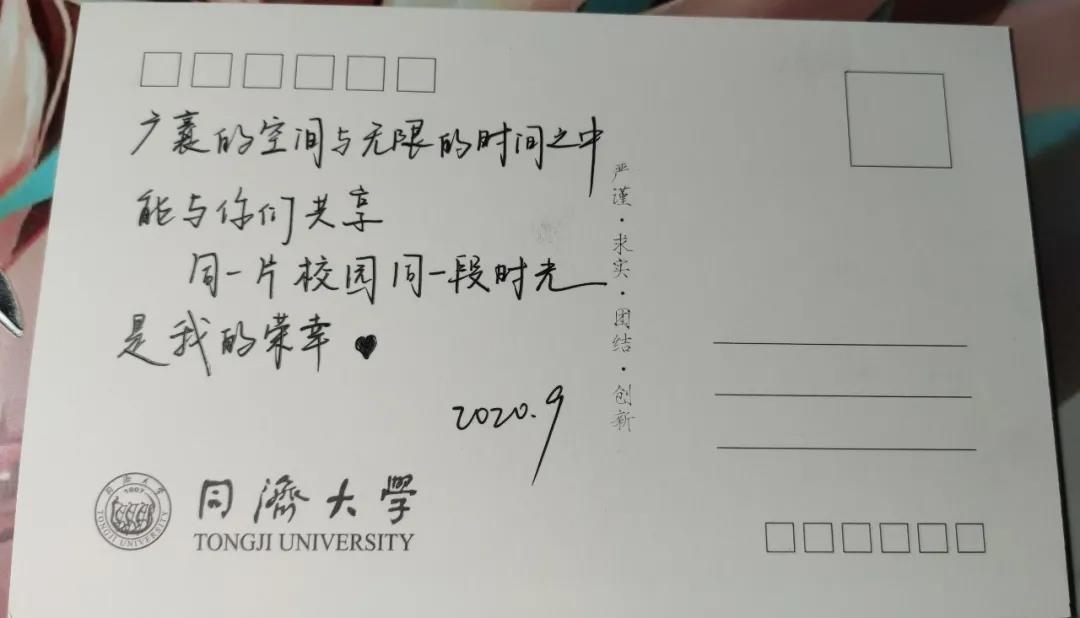 广袤的空间与无限的时间之中
能与你们共享
同一片校园同一段时光
是我的荣幸♥
2020.9
严谨·求实·团结·创新
同濟大學
1907
同濟大學
TONGJI UNIVERSITY
TONGJI UNIVERSITY